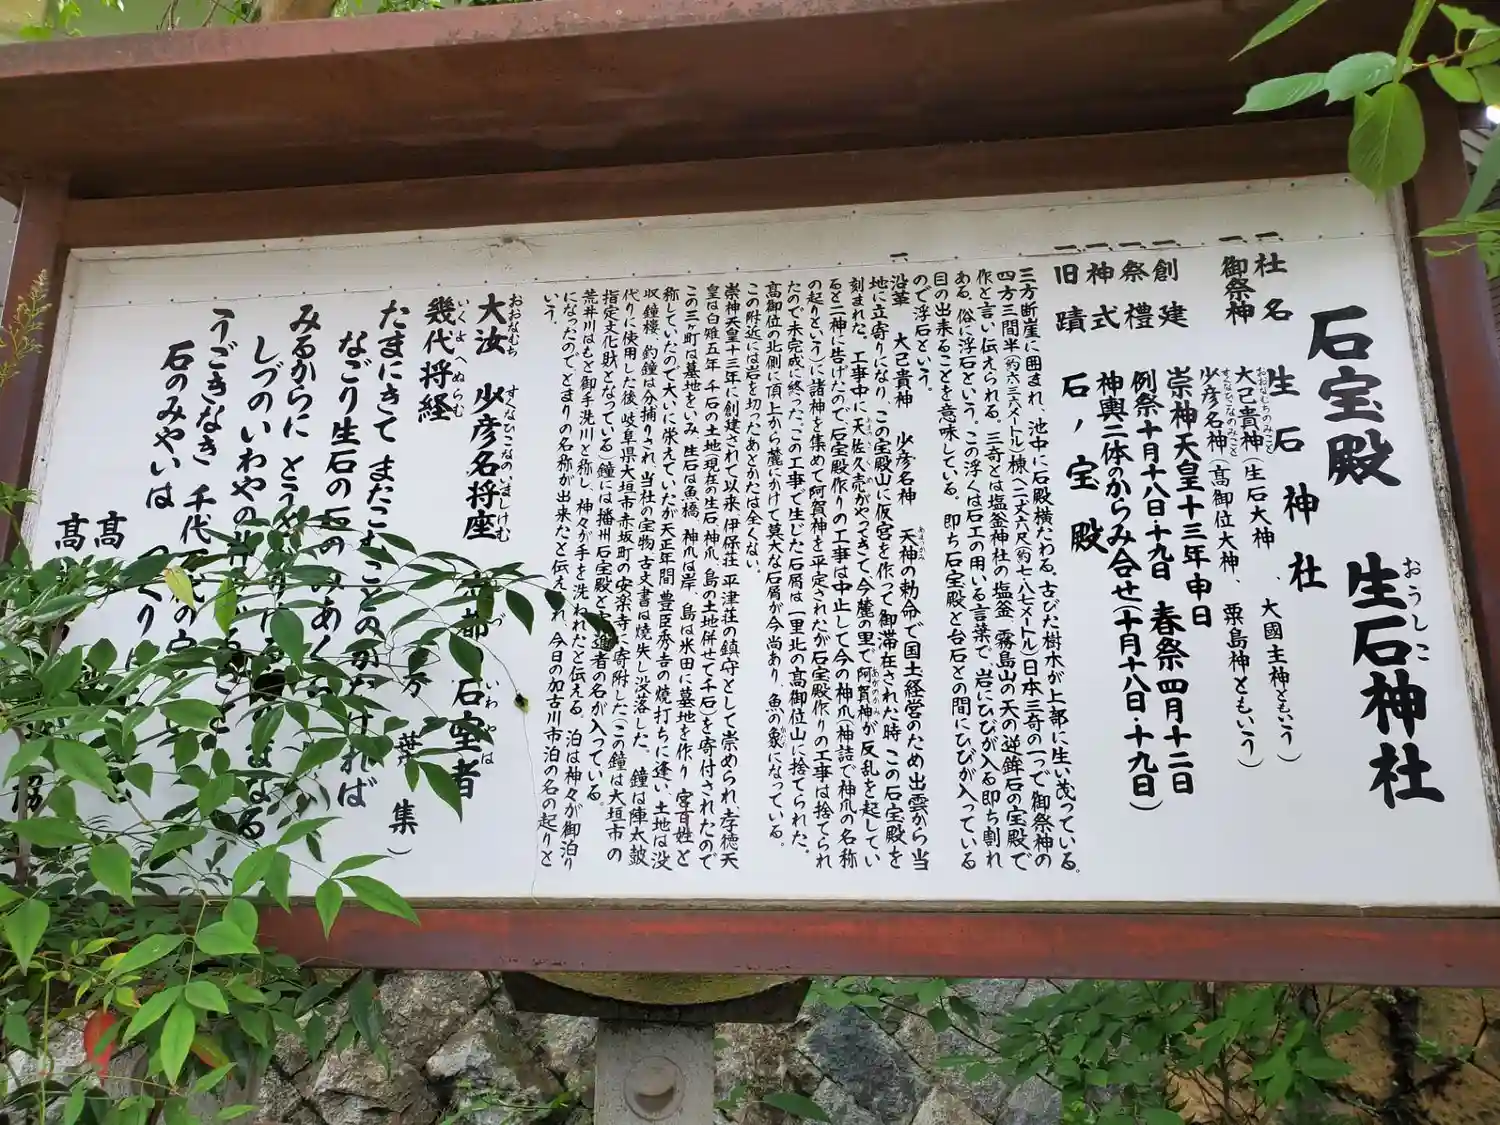 石宝殿 生石神社
おうしこ
一、社名 生石神社
一、御祭神 大己貴神(生石大神、大國主神ともいう)
おおなむちのみこと
少彦名神(高御位大神、粟島神ともいう)
すくなひこなのみこと
一、創建 崇神天皇十三年申日
一、祭禮 例祭十月十八日・十九日 春祭四月十二日
一、神式 神輿二体のからみ合せ(十月十八日・十九日)
一、旧蹟 石ノ宝殿
三方断崖に囲まれ、池中に石殿横たわる。古びた樹木が上部に生い茂っている。
四方三間半(約六・三六メートル)棟へ二丈六尺(約七・八七メートル)日本三奇の一つで御祭神の
作と言い伝えられる。三奇とは塩釜神社の塩釜、霧島山の天の逆鉾石の宝殿で
ある。俗に浮石という。この浮くは石工の用いる言葉で、岩にひびが入る即ち割れ
目の出来ることを意味している。即ち石宝殿と台石との間にひびが入っている
ので浮石という。
一、沿革 大己貴神 少彦名神 天神の勅命で国土経営のため出雲から当
地に立寄りになり、この宝殿山に仮宮を作って御滞在された時 この石宝殿を
刻まれた。工事中に天佐久売がやってきて、今麓の里で阿賀神が反乱を起してい
ると二神に告げたので、石宝殿作りの工事は中止して今の神爪(神詰で神爪の名称
の起りという)に諸神を集めて阿賀神を平定されたが石宝殿作りの工事は捨てられ
たので未完成に終った。この工事で生じた石屑は一里北の高御位山に捨てられた。
高御位の北側に頂上から麓にかけて莫大な石屑が今尚あり、魚の象になっている。
この附近には岩を切ったあとかたは全くない。
崇神天皇十三年に創建されて以来、伊保荘 平津荘の鎮守として崇められ、孝徳天
皇は白雉五年 千石の土地(現在の生石、神爪、島の土地併せて千石)を寄付されたので
この三ヶ町は墓地をいみ、生石は魚橋、神爪は岸、島は米田に墓地を作り 宮百姓と
称していたので大いに栄えていたが天正年間 豊臣秀吉の焼打ちに逢い、土地は没
収、鐘楼、釣鐘は分捕りされ、当社の宝物、古文書は焼失し没落した。鐘は陣太鼓
代りに使用した後、岐阜県大垣市赤坂町の安楽寺に寄附した(この鐘は大垣市の
指定文化財となっている)鐘には播州石宝殿と寄進者の名が入っている。
荒井川はもと御手洗川と称し、神々が手を洗われたと伝える。泊は神々が御泊り
になったので、とまりの名称が出来たと伝えられ、今日の加古川市泊の名の起りと
いう。
大汝 少彦名将座 志都 石室者
おおなむち すくなひこなのいましけむ づ いわやは
幾代将経 万葉集)
いくよへぬらむ
たまにきて またこむことのかたければ
なごり生石の
みるからに
しづのいわやの
うごきなき 千代
石のみやいは つくり
高
高